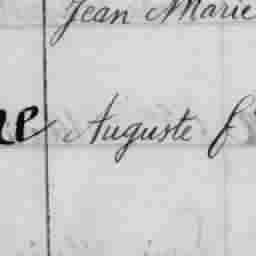 Jean Marie
ne Auguste f